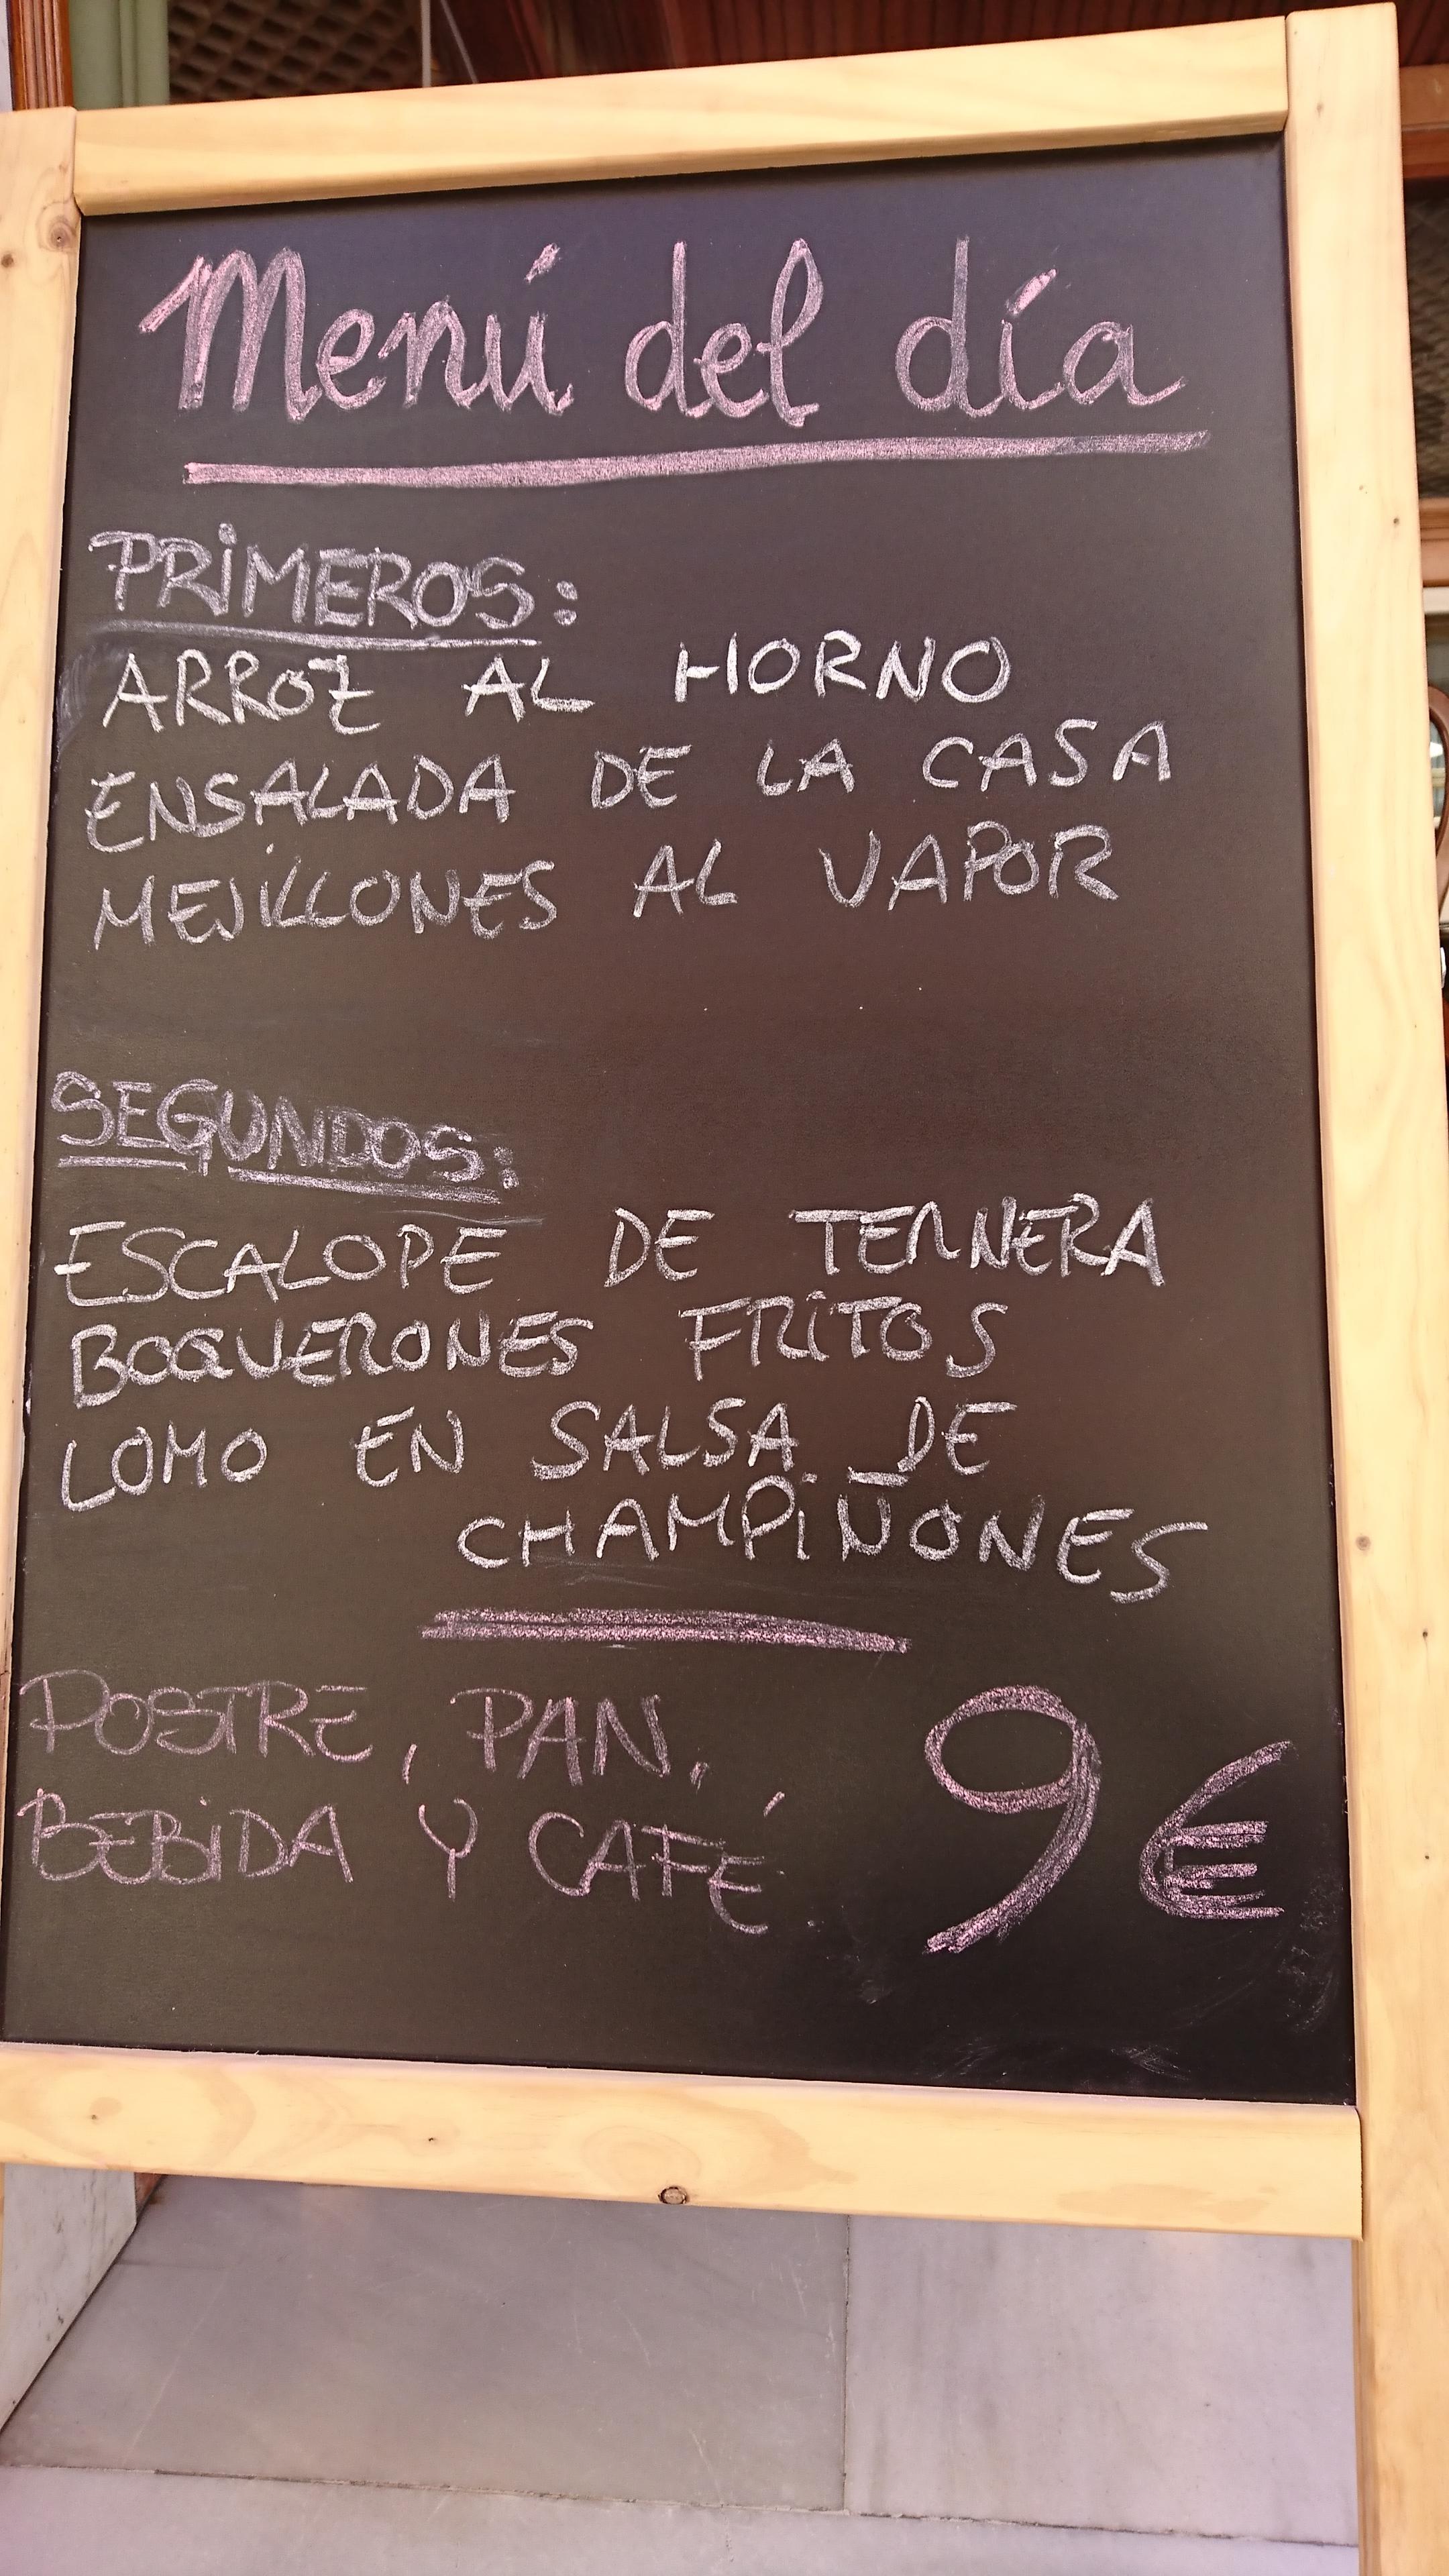 Menú del día
PRIMEROS:
ARROZ AL HORNO
ENSALADA DE LA CASA
MEJILLONES AL VAPOR
SEGUNDOS:
ESCALOPE DE TERNERA
BOQUERONES FRITOS
LOMO EN SALSA DE
CHAMPIÑONES
POSTRE, PAN,
BEBIDA Y CAFÉ
9€